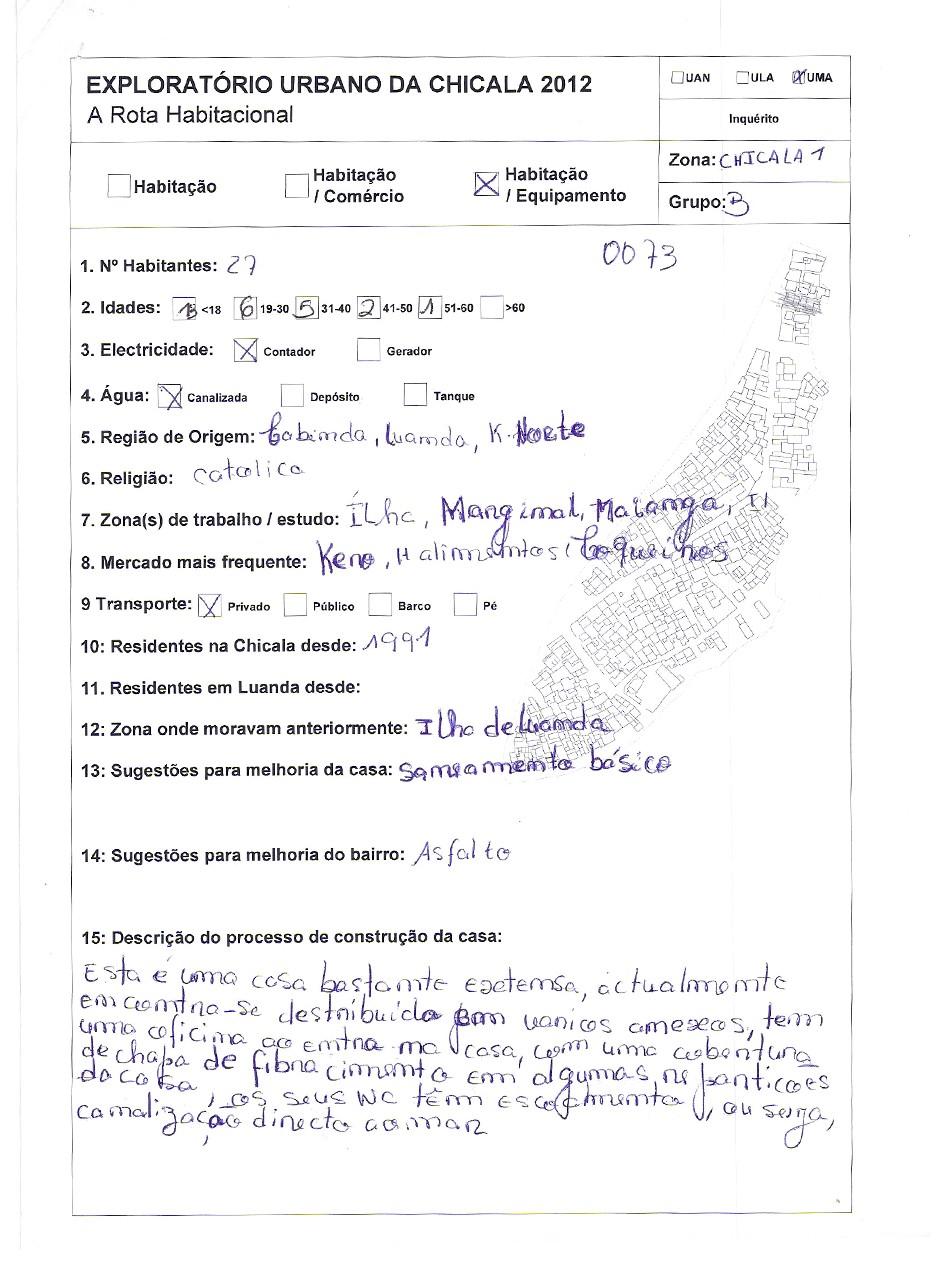 EXPLORATÓRIO URBANO DA CHICALA 2012
A Rota Habitacional
UAN ULA UMA
Inquérito
Zona: CHICALA 1
Grupo: B
Habitação
Habitação / Comércio
Habitação / Equipamento
0073
1. Nº Habitantes: 27
2. Idades: 13 <18 6 19-30 5 31-40 2 41-50 1 51-60 >60
3. Electricidade: Contador Gerador
4. Água: Canalizada Depósito Tanque
5. Região de Origem: Cabinda, Luanda, K. Norte
6. Religião: catolica
7. Zona(s) de trabalho / estudo: ILha, Marginal, Maianga, II
8. Mercado mais frequente: Kero, H alimentos, Coqueiros
9 Transporte: Privado Público Barco Pé
10: Residentes na Chicala desde: 1991
11. Residentes em Luanda desde:
12: Zona onde moravam anteriormente: Ilha de Luanda
13: Sugestões para melhoria da casa: saneamento básico
14: Sugestões para melhoria do bairro: Asfalto
15: Descrição do processo de construção da casa:
Esta é uma casa bastante extensa, actualmente
encontra-se destribuida em varios anexos, tem
uma oficina ao entrar na casa, com uma cobertura
de chapa de fibra cimento em algumas repartições
da casa, os seus WC têm escoamento, ou seja,
canalização directo ao mar